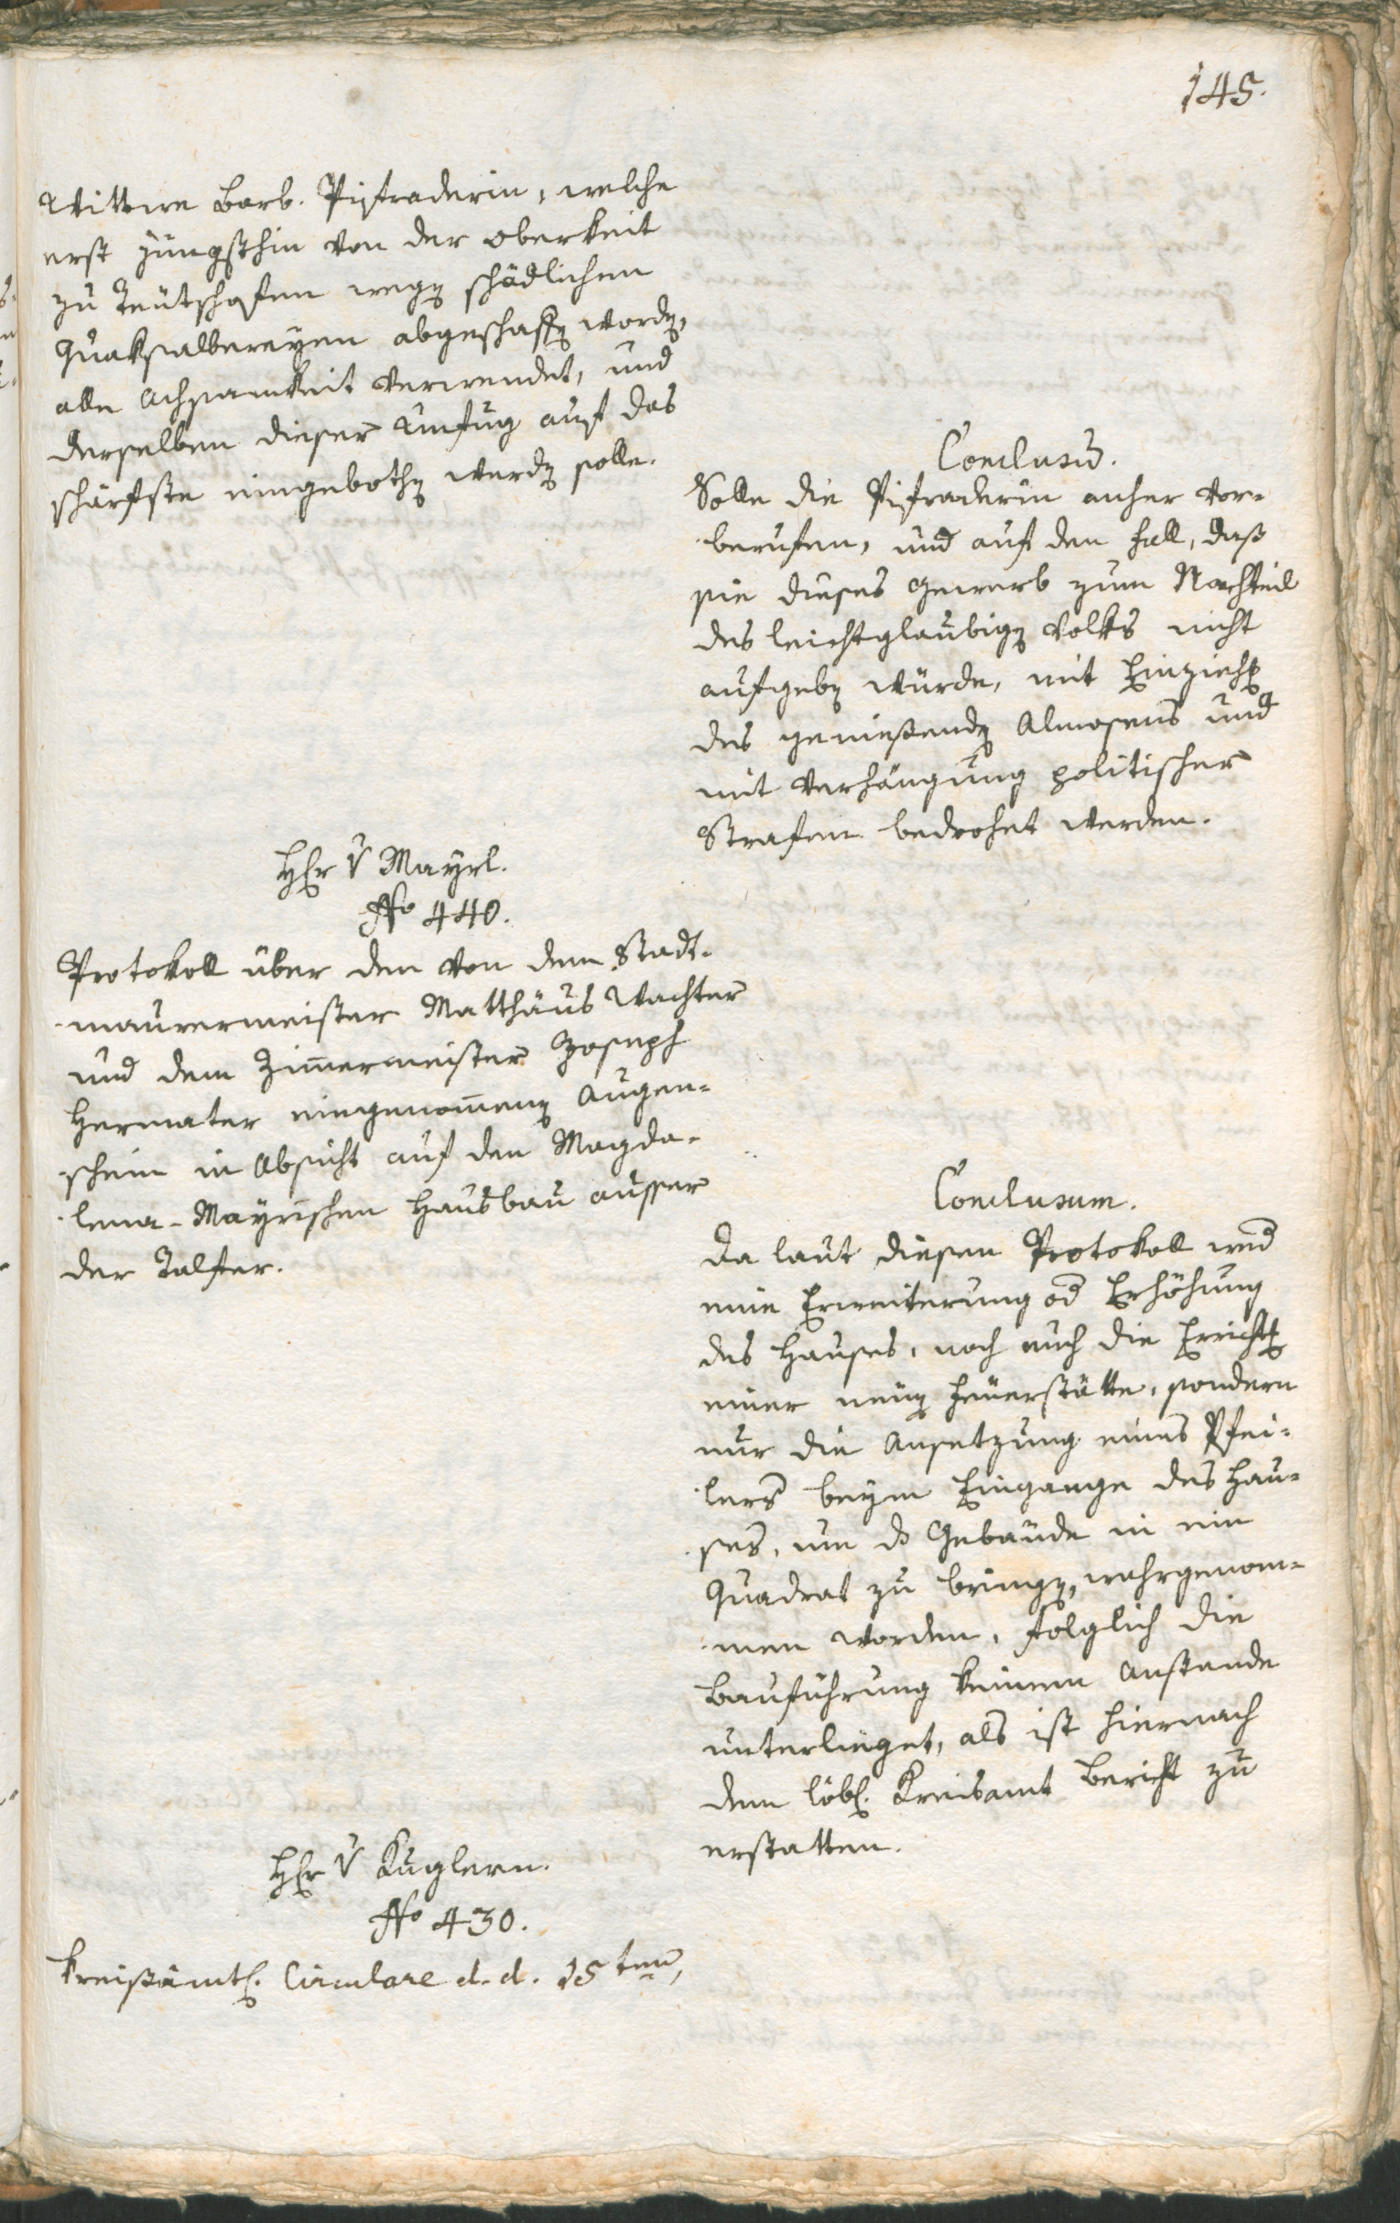 145.
Wittwe Barb. Pifraderin, welche
erst jüngsthin von der Oberkeit
zu Teutschofen wegen schädlichen
Quaksalbereyen abgeschaffen worden,
alle Achsamkeit verwendet, und
derselben dieser Unfug auf das
schärfste eingebothen werden solle.
Conclusum.
Solle die Pifraderin anher vor-
berufen, und auf den Fall, daß
sie dieses Gewerb zum Nachteil
des leichtglaubigen Volks nicht
aufgeben würde, mit Einziehung
des genießenden Almosens und
mit Verhängung politischer
Strafen bedrohet werden.
Herr v Mayrl.
No 440.
Protokoll über den von dem Stadt-
maurermeister Matthäus Wachter
und dem Zimmermeister Joseph
Hermater eingenommenen Augen-
schein in Absicht auf den Magda-
lena-Mayrischen Hausbau ausser
der Talfer.
Conclusum.
Da laut diesen Protokoll weder
eine Erweiterung oder Erhöhung
des Hauses, noch auch die Errichtung
einer neuen Feuerstätte, sondern
nur die Ansetzung eines Pfei-
lers beym Eingange des Hau-
ses, um das Gebäude in ein
Quadrat zu bringen, wahrgenom-
men worden, folglich die
Bauführung keinem Anstande
unterlieget, als ist hiernach
dem löbl. Kreisamt Bericht zu
erstatten.
Herr v Kuglern.
No 430.
Kreißämtl. Circulare d. d. 15ten,